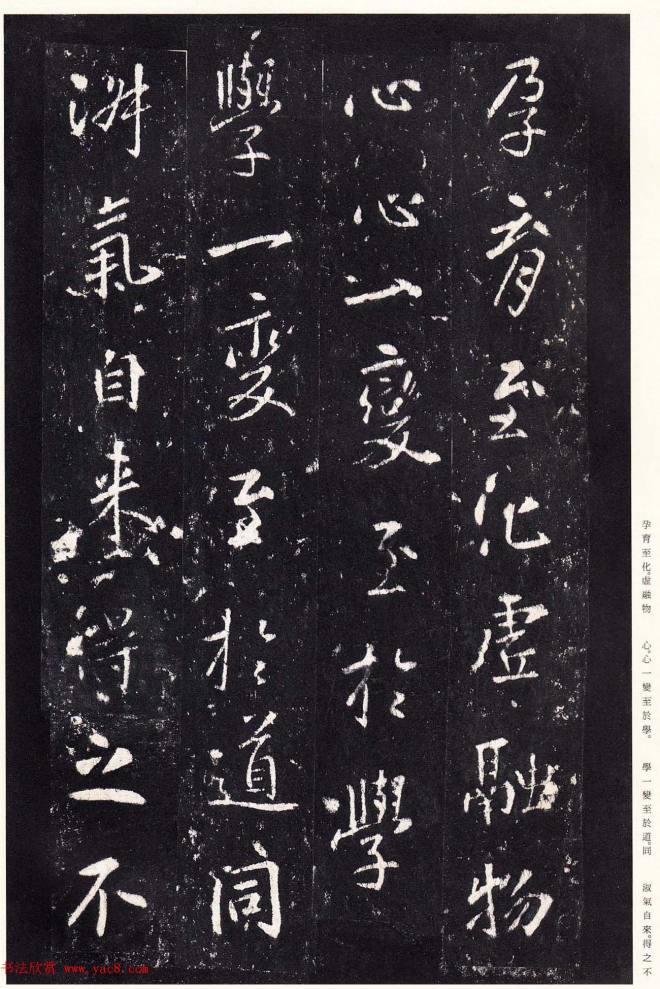 孕育至化虛融物
心心一變至於學
學一變至於道同
淑氣自來得之不
孕育至化。虛融物　心。心一變至於學。　學一變至於道。同　淑氣自來。得之不
书法欣赏 www.yac8.com